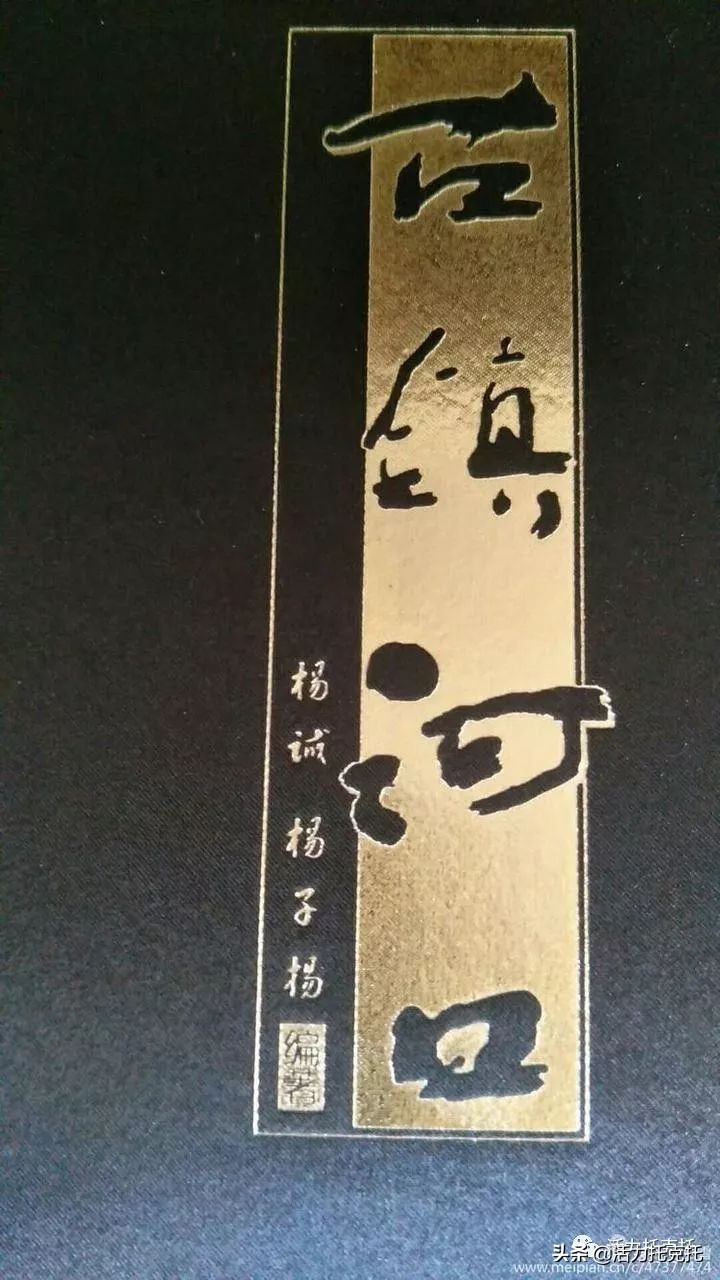 古鎮河口
楊誠 楊子楊
編著
头条 @活力托克托
www.meipian.cn/c/47377474